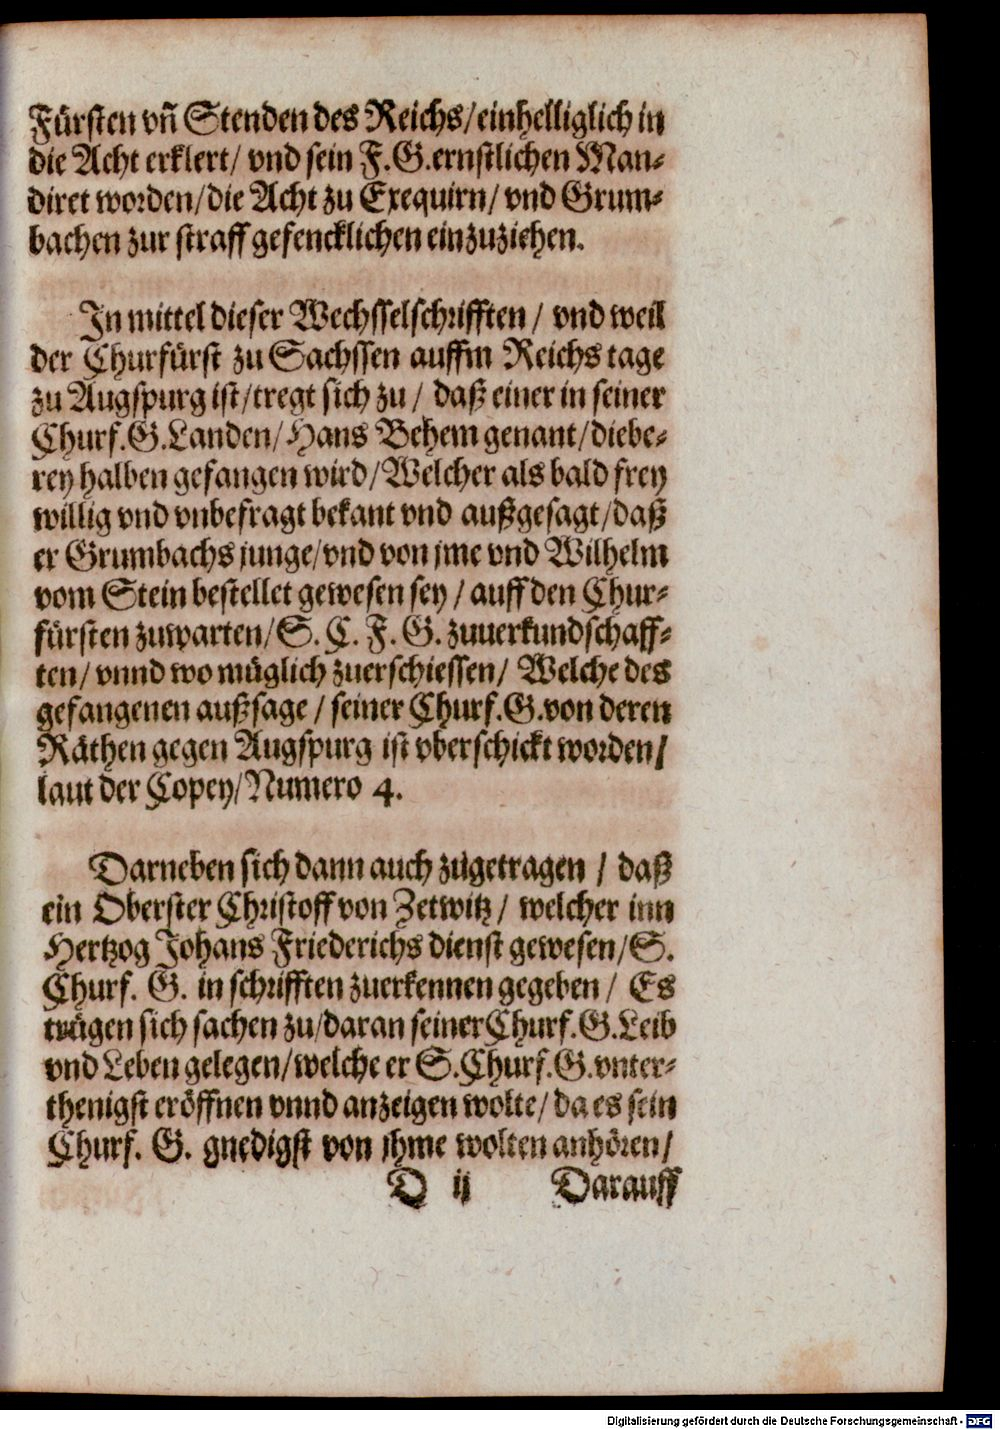 Fürsten vñ Stenden des Reichs/einhelliglich in
die Acht erklert/ vnd sein F.G.ernstlichen Man-
diret worden/die Acht zu Exequirn/ vnd Grum-
bachen zur straff gefencklichen einzuziehen.
In mittel dieser Wechsselschrifften / vnd weil
der Churfürst zu Sachssen auffm Reichs tage
zu Augspurg ist/tregt sich zu / daß einer in seiner
Churf.G.Landen/Hans Behem genant/diebe-
rey halben gefangen wird/Welcher als bald frey
willig vnd vnbefragt bekant vnd außgesagt/daß
er Grumbachs junge/vnd von jme vnd Wilhelm
vom Stein bestellet gewesen sey / auff den Chur-
fürsten zuwarten/S. C. F. G. zuuerkundschaff-
ten/ vnnd wo müglich zuerschiessen/ Welche des
gefangenen außsage / seiner Churf.G.von deren
Räthen gegen Augspurg ist vberschickt worden/
laut der Copey/Numero 4.
Darneben sich dann auch zugetragen / daß
ein Oberster Christoff von Zetwitz / welcher inn
Hertzog Johans Friederichs dienst gewesen/S.
Churf. G. in schrifften zuerkennen gegeben / Es
trügen sich sachen zu/daran seiner Churf.G.Leib
vnd Leben gelegen/welche er S.Churf.G.vnter-
thenigst eröffnen vnnd anzeigen wolte/ da es sein
Churf. G. gnedigst von jhme wolten anhören/
D ij Darauff
Digitalisierung gefördert durch die Deutsche Forschungsgemeinschaft - DFG